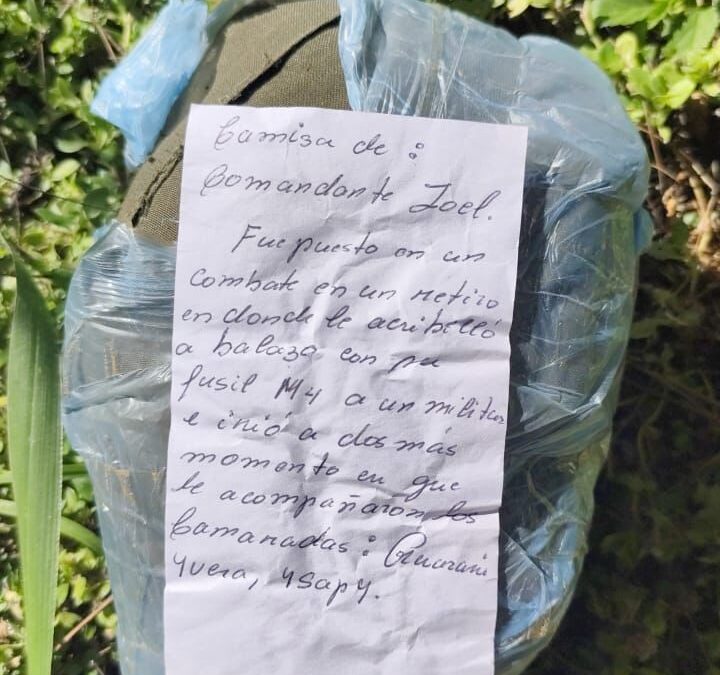 Camisa de :
Comandante Joel.
Fue puesto en un
combate en un retiro
en donde le acribilló
a balaza con su
fusil M4 a un militar
e irió a dos más
momento en que
le acompañaron los
Camaradas : Guarani
Yvera, Ysapy.